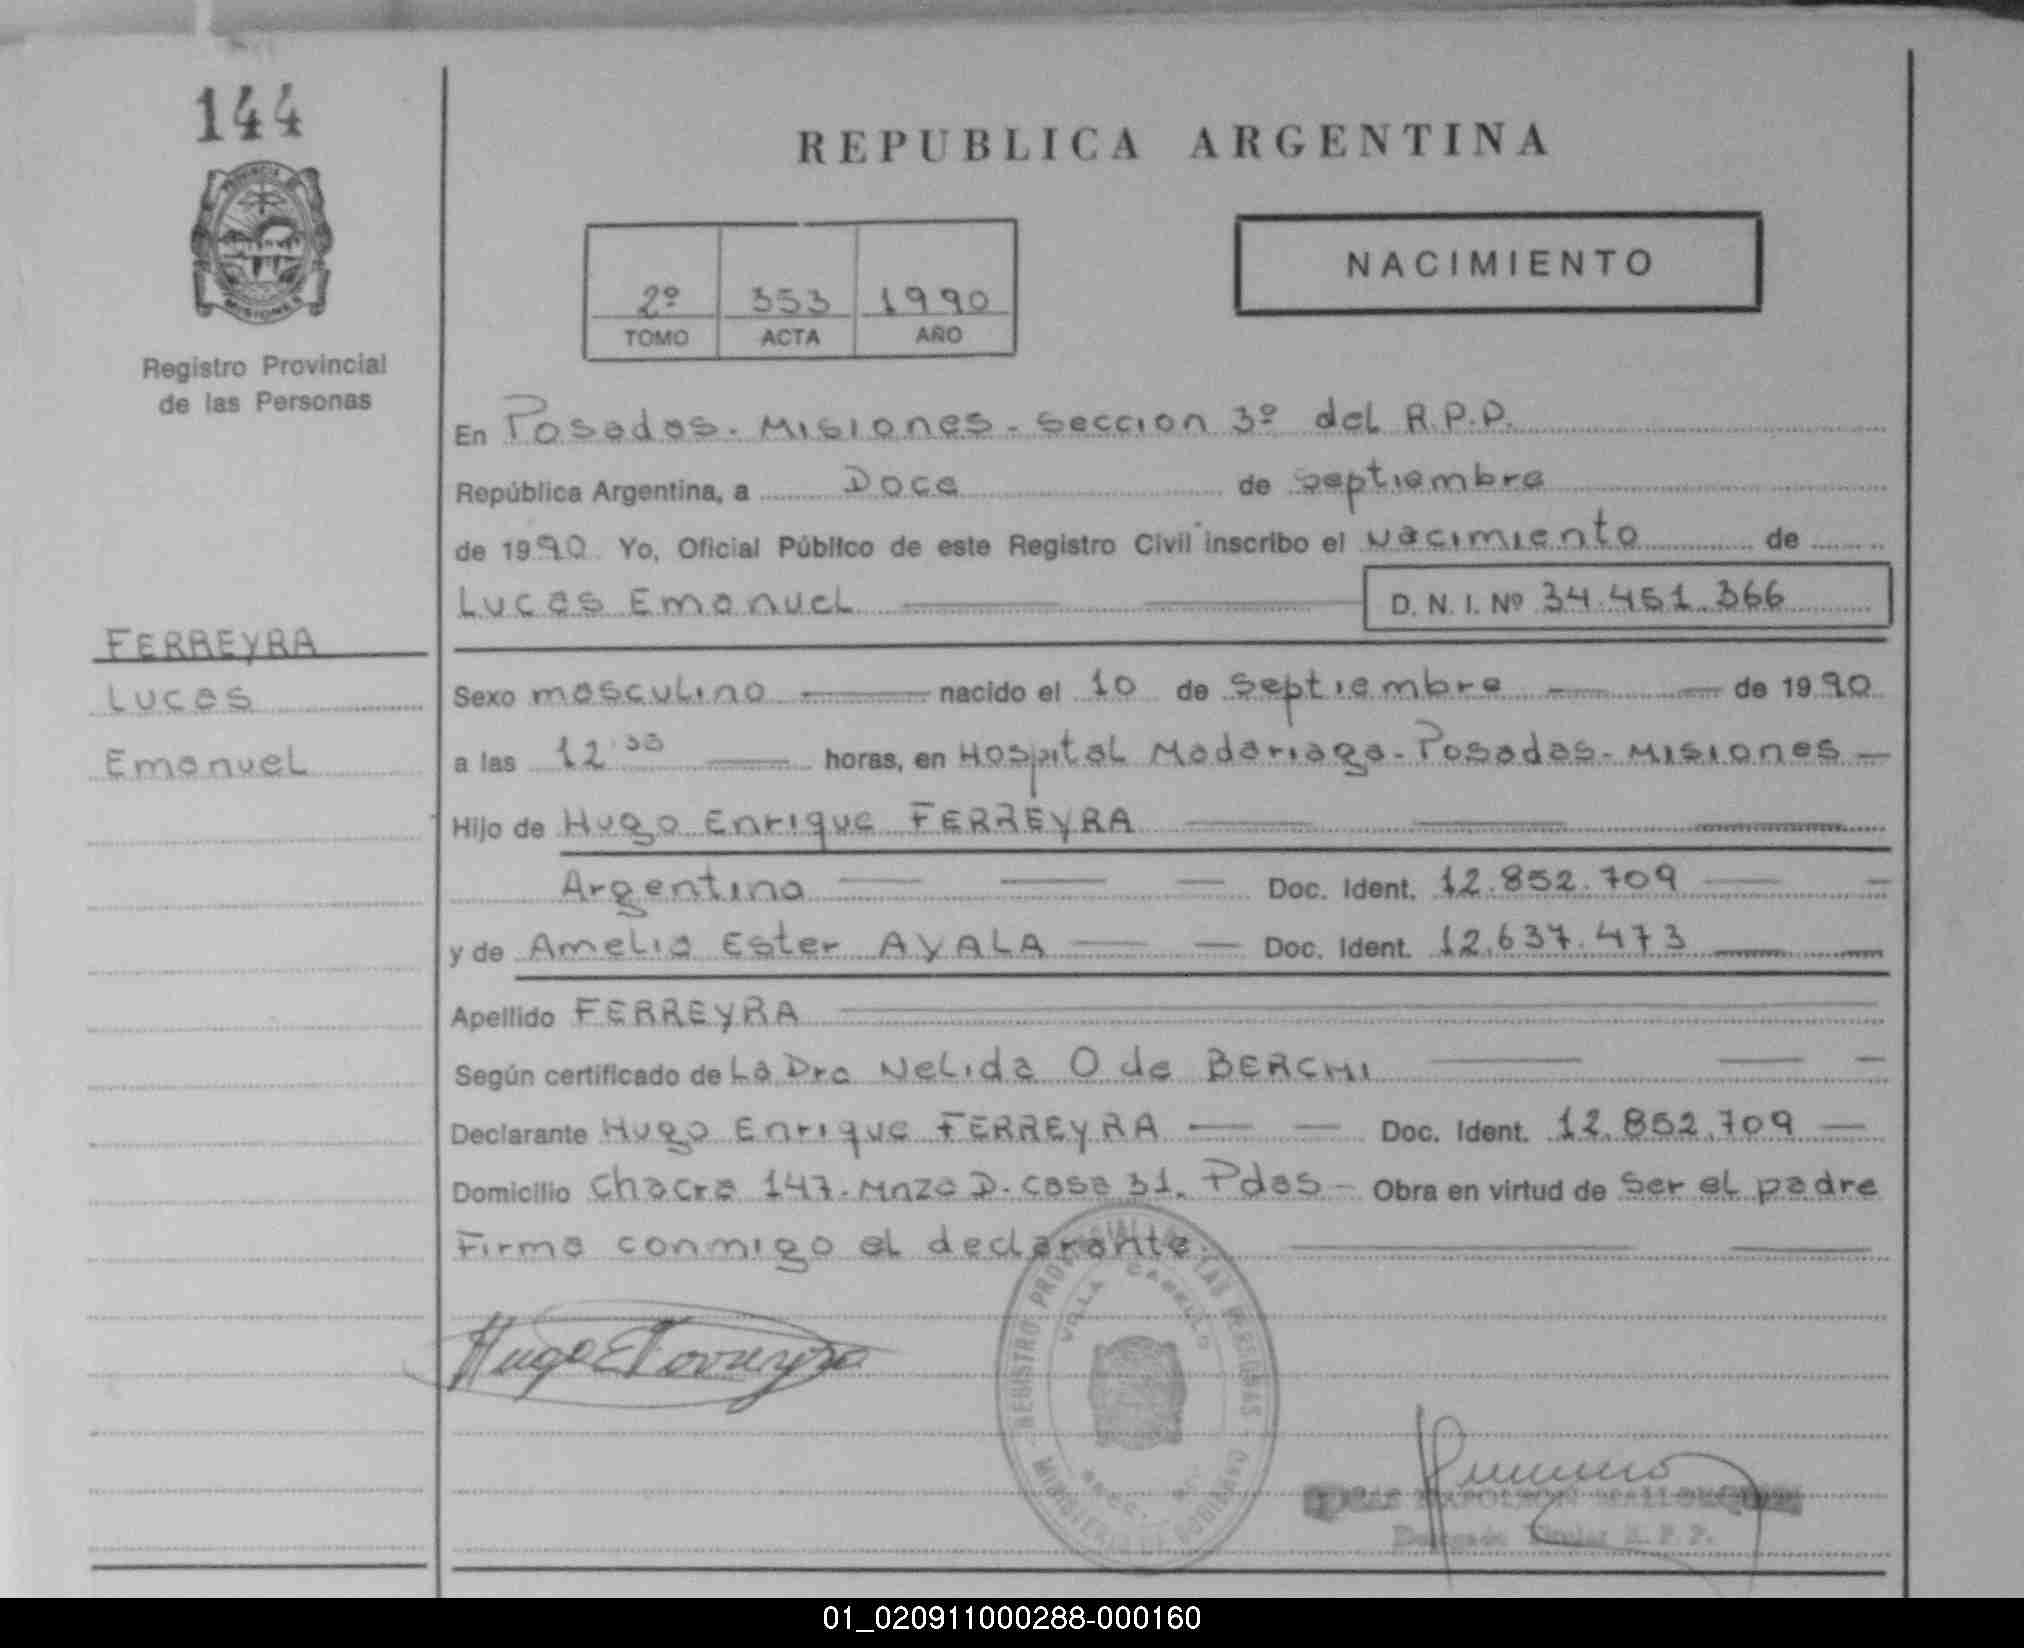 144
REPUBLICA ARGENTINA
PROVINCIA DE
MISIONES
Registro Provincial
de las Personas
NACIMIENTO
2º 353 1990
TOMO ACTA AÑO
En Posadas. Misiones. seccion 3º del R.P.P.
República Argentina, a Doce de septiembre
de 1990 Yo, Oficial Público de este Registro Civil inscribo el Nacimiento de
Lucas Emanuel D. N. I. Nº 34.451.366
FERREYRA
Lucas
Emanuel
Sexo masculino nacido el 10 de septiembre de 1990
a las 12 horas, en Hospital Madariaga - Posadas - Misiones -
Hijo de Hugo Enrique FERREYRA
Argentino Doc. Ident. 12.852.709
y de Amelia Ester AYALA Doc. Ident. 12.637.473
Apellido FERREYRA
Según certificado de La Dra Nelida O de BERCHI
Declarante Hugo Enrique FERREYRA Doc. Ident. 12.852.709
Domicilio chacra 147. Mnza D. casa 31. Pdas - Obra en virtud de ser el padre
Firma conmigo el declarante
REGISTRO PROVINCIAL DE LAS PERSONAS
VILLA CABELLO
MINISTERIO DE GOBIERNO
Hugo E Ferreyra
NAPOLEON
Delegado Titular R. P. P.
01_020911000288-000160